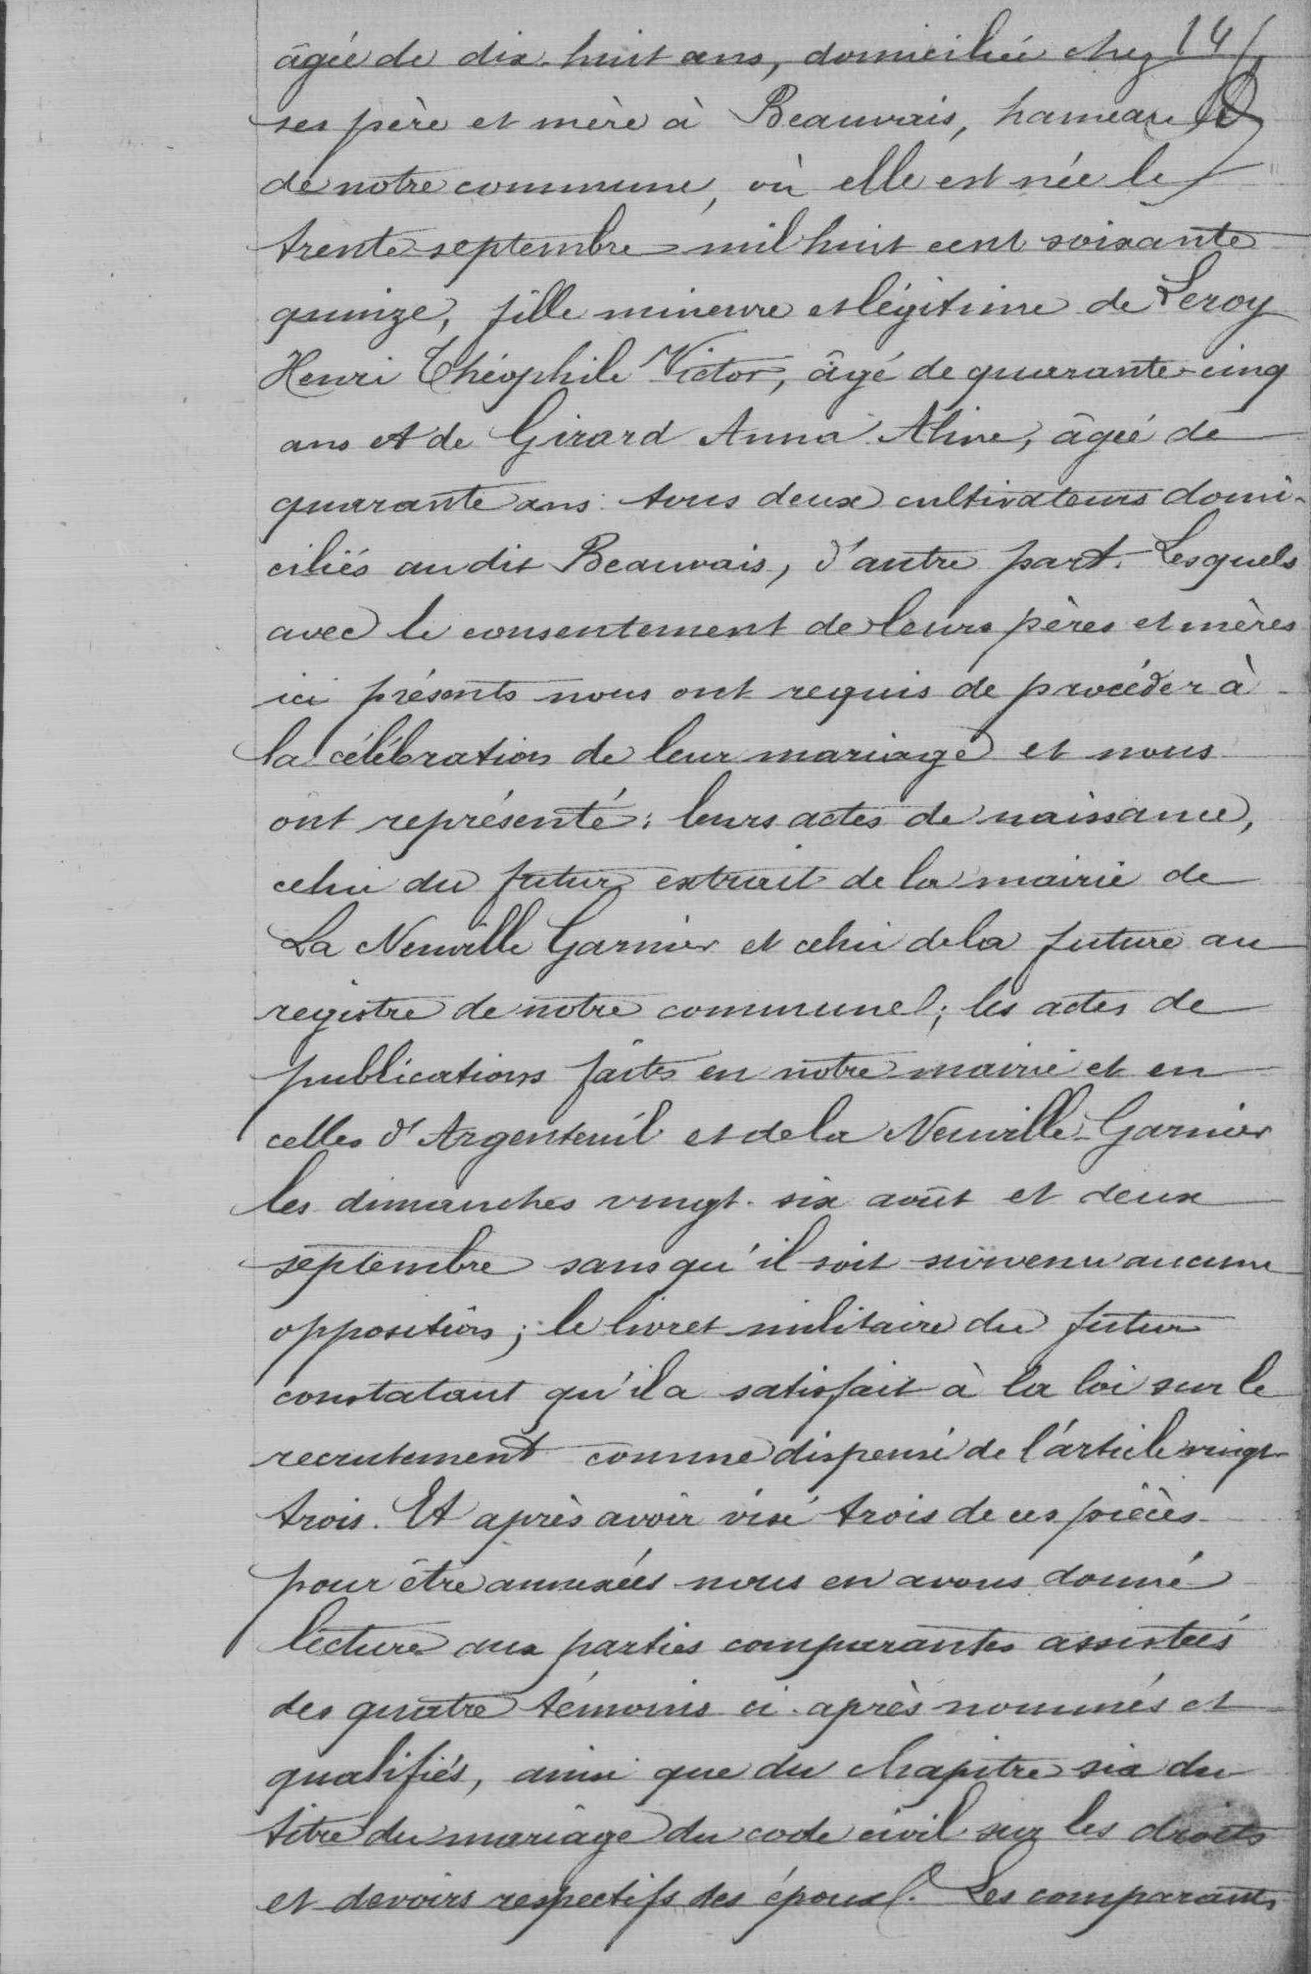 14
âgée de dix-huit ans, domiciliée chez
ses père et mère à Beauvais, hameau
de notre commune, où elle est née le
trente septembre mil huit cent soixante
quinze, fille mineure et légitime de Leroy
Henri Théophile Victor, âgé de quarante-cinq
ans et de Girard Anna Aline, âgée de
quarante ans tous deux cultivateurs domi-
ciliés audit Beauvais, d'autre part. Lesquels
avec le consentement de leurs pères et mères
ici présents nous ont requis de procéder à
la célébration de leur mariage et nous
ont représenté: leurs actes de naissance,
celui du futur extrait de la mairie de
La Neuville Garnier et celui de la future au
registre de notre commune; les actes de
publications faites en notre mairie et en
celles d'Argenteuil et de la Neuville-Garnier
les dimanches vingt-six août et deux
septembre sans qu'il soit survenu aucune
opposition; le livret militaire du futur
constatant qu'il a satisfait à la loi sur le
recrutement comme dispensé de l'article vingt
trois. Et après avoir visé trois de ces pièces
pour être annexées nous en avons donné
lecture aux parties comparantes assistées
des quatre témoins ci-après nommés et
qualifiés, ainsi que du chapitre six du
titre du mariage du code civil sur les droits
et devoirs respectifs des époux. Les comparants